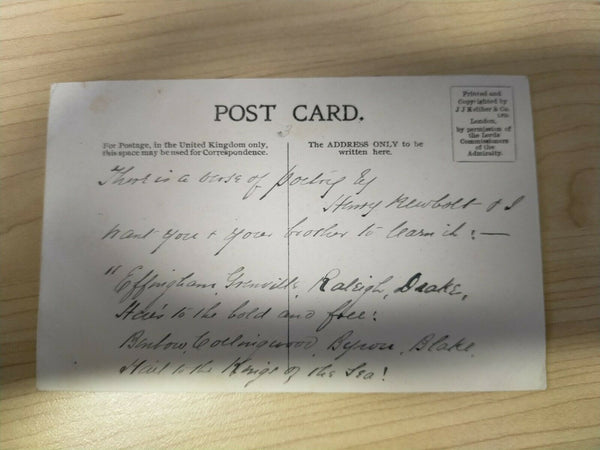 POST CARD.
For Postage, in the United Kingdom only,
this space may be used for Correspondence.
The ADDRESS ONLY to be
written here.
Printed and
Copyrighted by
J J Keliher & Co.
LTD.
London,
by permission of
the Lords
Commissioners
of the
Admiralty.
There is a verse of poetry by
Henry Newbolt & I
want you & your brother to learn it:—
"Effingham, Grenville, Raleigh, Drake,
Here's to the bold and free:
Benbow, Collingwood, Byron, Blake,
Hail to the Kings of the Sea!